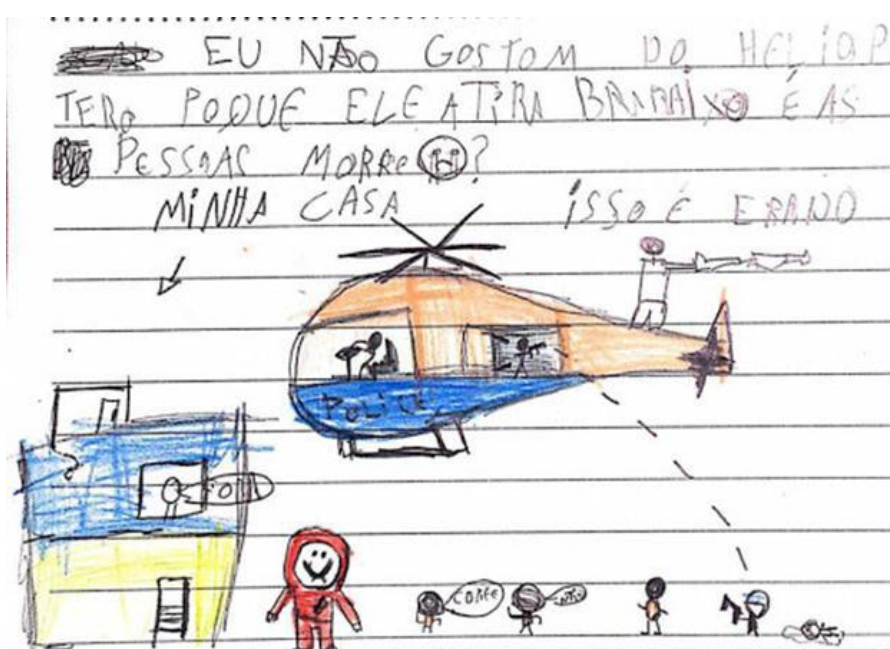 EU NÃO GOSTOM DO HELIOP
TERO POQUE ELE ATIRA É AS
PESSOAS MORRE ?
MINHA CASA ISSO É ERADO
POLICE
CORRE